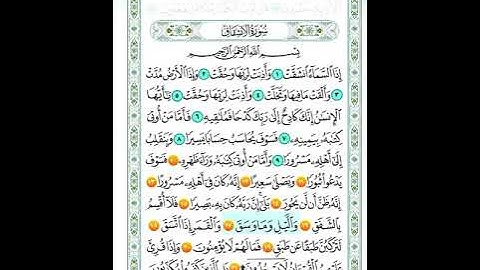 سُورَةُ الانشِقَاقِ
بِسْمِ اللَّهِ الرَّحْمَٰنِ الرَّحِيمِ
إِذَا السَّمَاءُ انشَقَّتْ ١ وَأَذِنَتْ لِرَبِّهَا وَحُقَّتْ ٢ وَإِذَا الْأَرْضُ مُدَّتْ
٣ وَأَلْقَتْ مَا فِيهَا وَتَخَلَّتْ ٤ وَأَذِنَتْ لِرَبِّهَا وَحُقَّتْ ٥ يَا أَيُّهَا
الْإِنسَانُ إِنَّكَ كَادِحٌ إِلَىٰ رَبِّكَ كَدْحًا فَمُلَاقِيهِ ٦ فَأَمَّا مَنْ أُوتِيَ
كِتَابَهُ بِيَمِينِهِ ٧ فَسَوْفَ يُحَاسَبُ حِسَابًا يَسِيرًا ٨ وَيَنقَلِبُ
إِلَىٰ أَهْلِهِ مَسْرُورًا ٩ وَأَمَّا مَنْ أُوتِيَ كِتَابَهُ وَرَاءَ ظَهْرِهِ ١٠ فَسَوْفَ
يَدْعُو ثُبُورًا ١١ وَيَصْلَىٰ سَعِيرًا ١٢ إِنَّهُ كَانَ فِي أَهْلِهِ مَسْرُورًا ١٣
إِنَّهُ ظَنَّ أَن لَّن يَحُورَ ١٤ بَلَىٰ إِنَّ رَبَّهُ كَانَ بِهِ بَصِيرًا ١٥ فَلَا أُقْسِمُ
بِالشَّفَقِ ١٦ وَاللَّيْلِ وَمَا وَسَقَ ١٧ وَالْقَمَرِ إِذَا اتَّسَقَ ١٨
لَتَرْكَبُنَّ طَبَقًا عَن طَبَقٍ ١٩ فَمَا لَهُمْ لَا يُؤْمِنُونَ ٢٠ وَإِذَا قُرِئَ